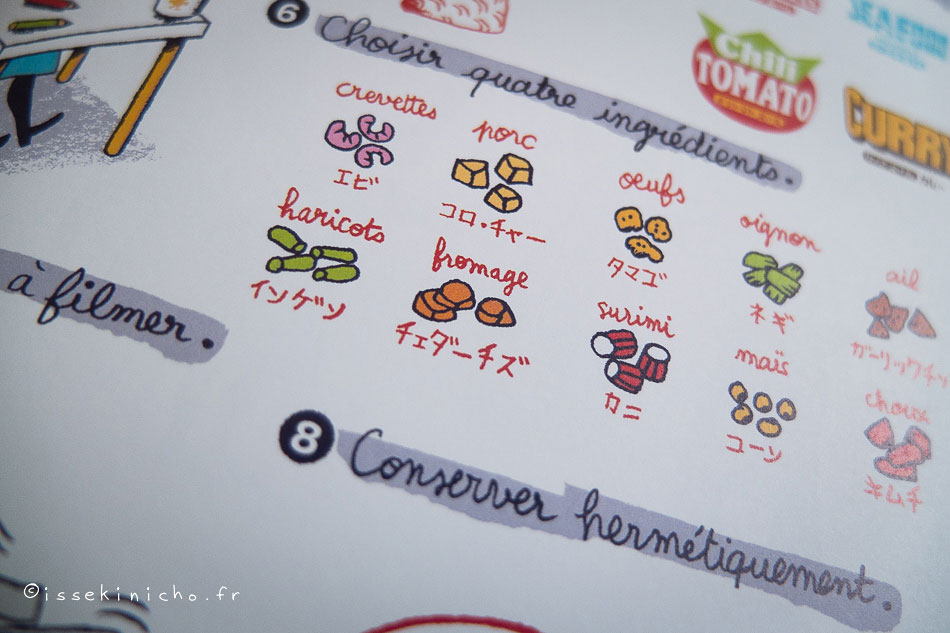 6 Choisir quatre ingrédients.
Chili
TOMATO
CURRY
crevettes
エビ
porc
コロ・チャー
oeufs
タマゴ
oignon
ネギ
ail
haricots
インゲン
fromage
チェダーチズ
surimi
カニ
maïs
コーン
choux
キムチ
à filmer.
8 Conserver hermétiquement.
©issekinicho.fr